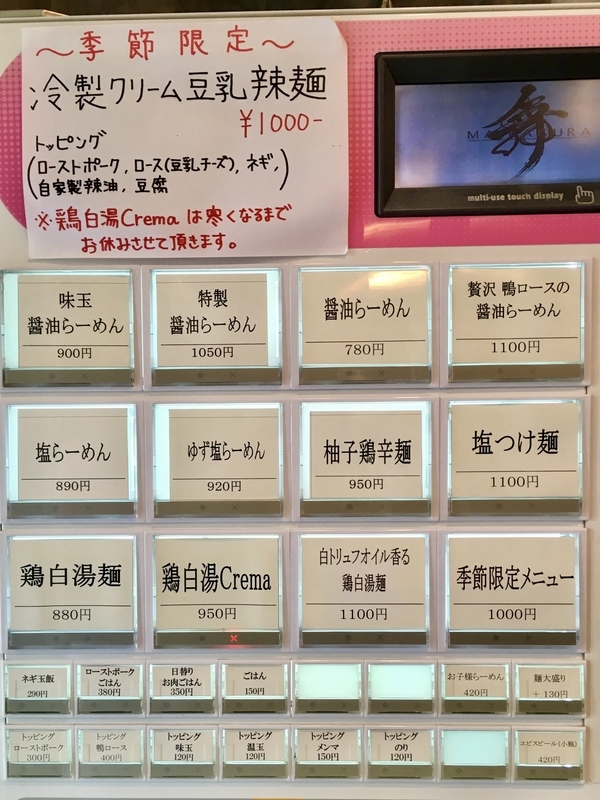 ～季節限定～
冷製クリーム豆乳辣麺
¥1000-
トッピング
(ローストポーク, ロース(豆乳チーズ), ネギ,
自家製辣油, 豆腐)
※鶏白湯Crema は寒くなるまで
お休みさせて頂きます。
舞
multi-use touch display
味玉
醤油らーめん
900円
特製
醤油らーめん
1050円
醤油らーめん
780円
贅沢 鴨ロースの
醤油らーめん
1100円
塩らーめん
890円
ゆず塩らーめん
920円
柚子鶏辛麺
950円
塩つけ麺
1100円
鶏白湯麺
880円
鶏白湯Crema
950円
白トリュフオイル香る
鶏白湯麺
1100円
季節限定メニュー
1000円
ネギ玉飯
290円
ローストポーク
ごはん
380円
日替り
お肉ごはん
350円
ごはん
150円
お子様らーめん
420円
麺大盛り
+ 130円
トッピング
ローストポーク
300円
トッピング
鴨ロース
400円
トッピング
味玉
120円
トッピング
温玉
120円
トッピング
メンマ
150円
トッピング
のり
120円
エビスビール(小瓶)
420円